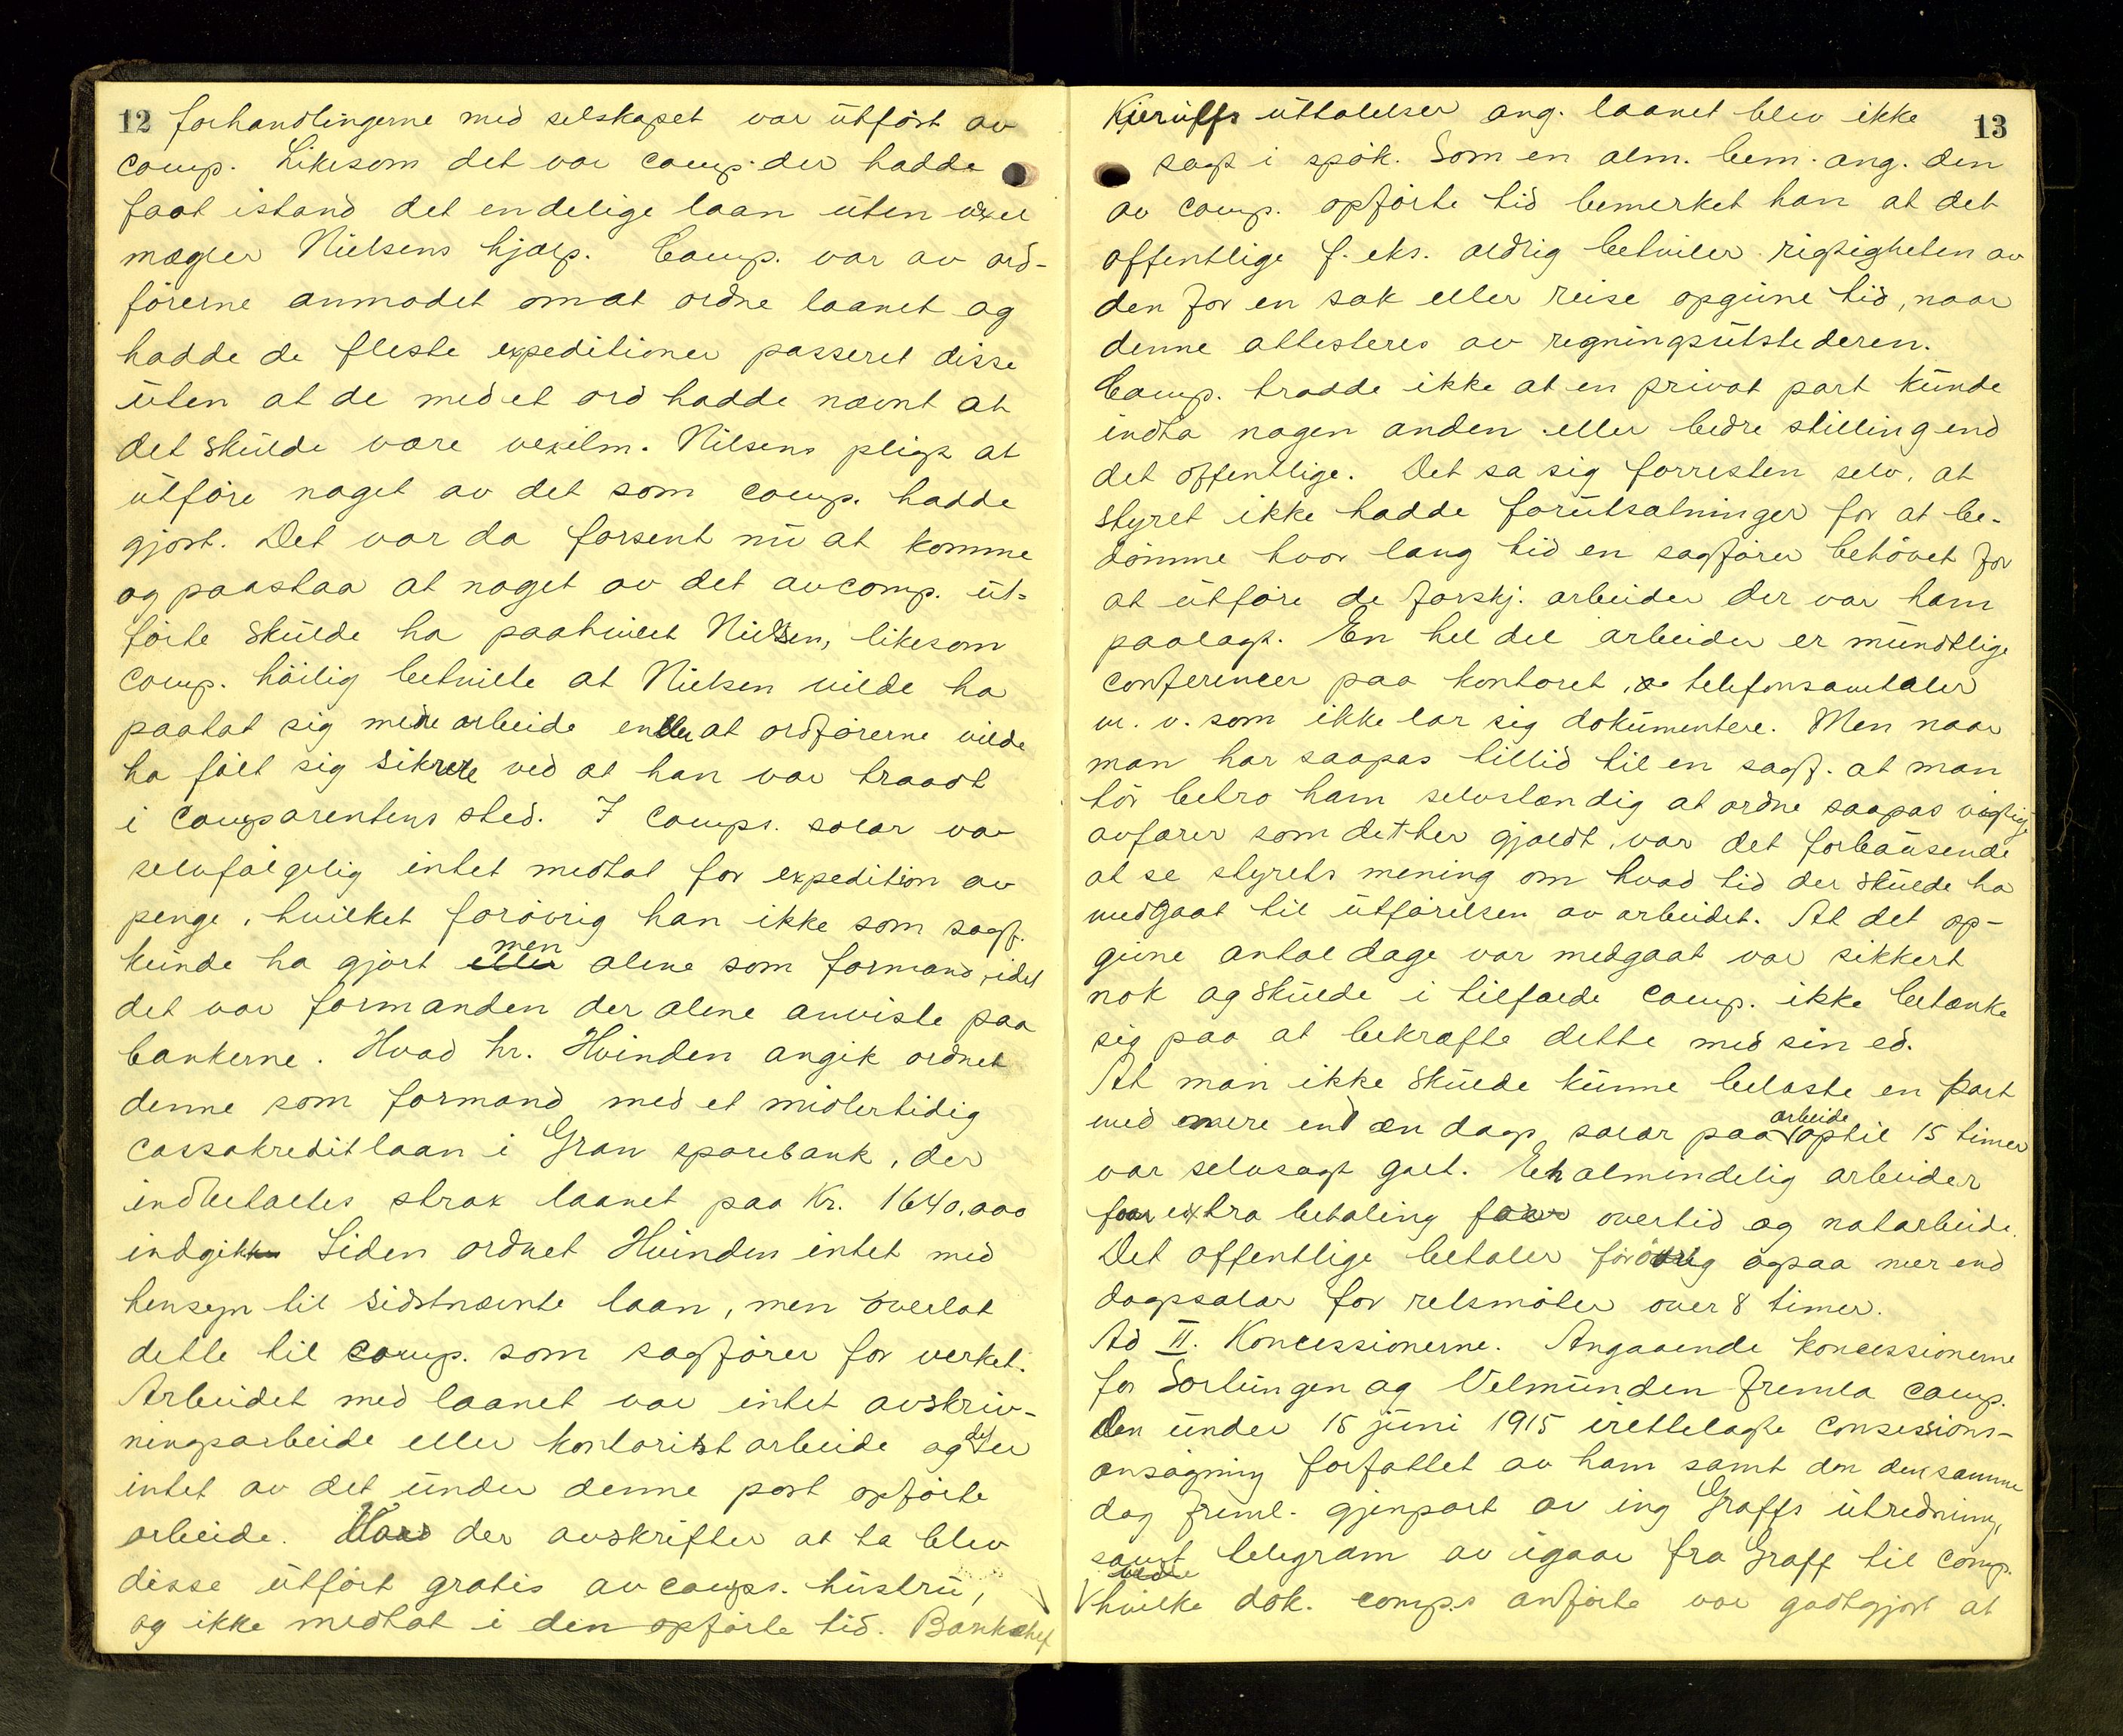 12 forhandlingerne med selskapet var utført av
comp. Likesom det var comp. der hadde
faat istand det endelige laan uten vexel
mægler Nielsens hjælp. Comp. var av ord-
førerne anmodet om at ordne laanet og
hadde de fleste expeditioner passeret disse
uten at de med et ord hadde nævnt at
det skulde være vexelm. Nilsens pligt at
utføre noget av det som comp. hadde
gjort. Det var da forsent nu at komme
og paastaa at noget av det av comp. ut-
førte skulde ha paahvilet Nielsen, likesom
comp. høilig betvilte at Nielsen vilde ha
paatat sig mere arbeide eller at ordførerne vilde
ha følt sig sikrere ved at han var traadt
i comparentens sted. I comps. salær var
selvfølgelig intet medtat for expedition av
penge, hvilket forøvrig han ikke som sagf.
kunde ha gjort eller men alene som formand, idet
det var formanden der alene anviste paa
bankerne. Hvad hr. Hvinden angik ordnet
denne som formand med et midlertidig
cassakreditlaan i Gran sparebank, der
indbetaltes strax laanet paa Kr. 1640.000
indgik. Siden ordnet Hvinden intet med
hensyn til sidstnævnte laan, men overlot
dette til comp. som sagfører for verket.
Arbeidet med laanet var intet avskriv-
ningsarbeide eller kontoristarbeide og det er
intet av det under denne post opførte
arbeide. Hvad der avskrifter at ta blev
disse utført gratis av comps. hustru,
og ikke medtat i den opførte tid. Bankchef
Kjerulfs uttalelser ang. laanet blev ikke 13
sagt i spøk. Som en alm. bem. ang. den
av comp. opførte tid bemerket han at det
offentlige f. eks. aldrig betviler rigtigheten av
den for en sak eller reise opgivne tid, naar
denne attesteres av regningsutstederen.
Comp. trodde ikke at en privat part kunde
indta nogen anden eller bedre stilling end
det offentlige. Det sa sig forresten selv, at
styret ikke hadde forutsætninger for at be-
dømme hvor lang tid en sagfører behøvet for
at utføre de forskj. arbeider der var ham
paalagt. En hel del arbeider er mundtlige
conferencer paa kontoret, telefonsamtaler
m. v. som ikke lar sig dokumentere. Men naar
man har saapas tillid til en sagf. at man
tør betro ham selvstændig at ordne saapas vigtige
avfærer som det her gjaldt, var det forbausende
at se styrets mening om hvad tid der skulde ha
medgaat til utførelsen av arbeidet. At det op-
givne antal dage var medgaat var sikkert
nok og skulde i tilfælde comp. ikke betænke
sig paa at bekræfte dette med sin ed.
At man ikke skulde kunne belaste en part
med mere end en dags salær paa arbeide optil 15 timer
var selvsagt galt. En almindelig arbeider
faar extra betaling for overtid og natarbeide.
Det offentlige betaler forøvrig ogsaa mer end
dagssalær for retsmøter over 8 timer.
Ad II. Koncessionerne. Angaaende koncessionerne
for Sorlungen og Velmunden fremla comp.
den under 15 juni 1915 irettelagte consessions-
ansøgning forfattet av ham samt den den samme
dag freml. gjenpart av ing Graffs utredning,
samt telegram av igaar fra Graff til comp.
hvilke dok. comps anførte var godtgjort at